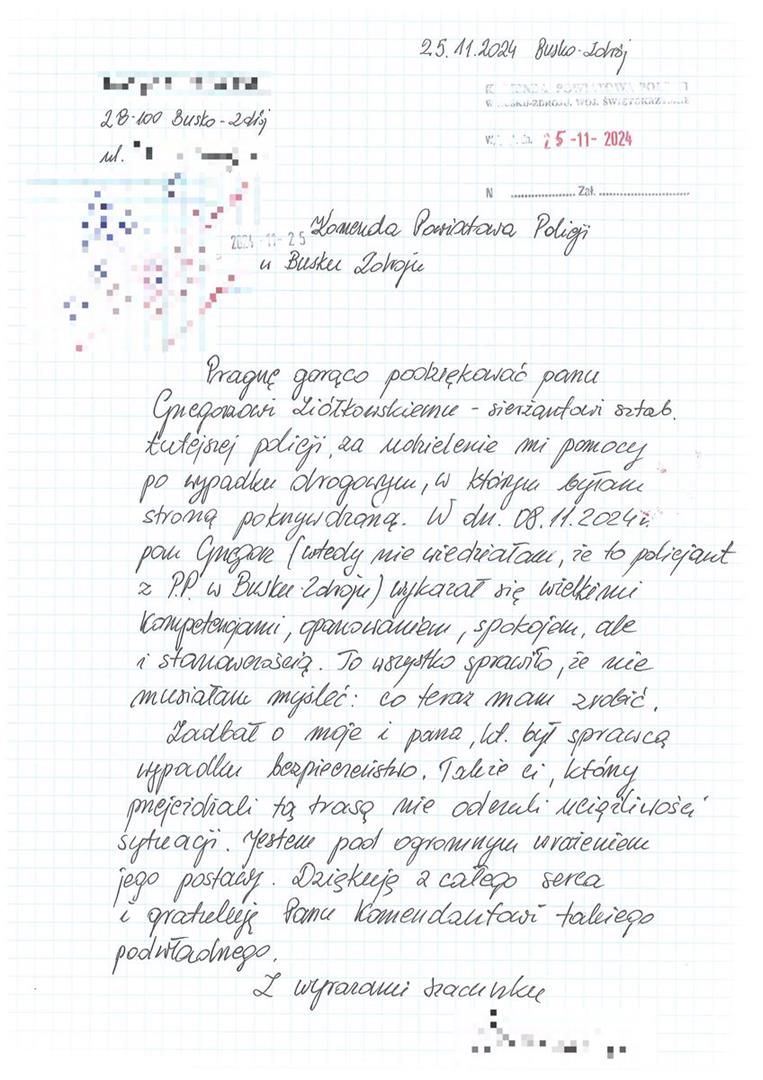 25.11.2024 Busko-Zdrój
28-100 Busko-Zdrój
ul.
POWIATOWA
ZDROJU, WOJ. ŚWIĘTOKRZ
25-11-2024
N ............ Zał. ............
2024-11-25
Komenda Powiatowa Policji
w Busku Zdroju
Pragnę gorąco podziękować panu
Grzegorzowi Ziółkowskiemu - sierżantowi sztab.
tutejszej policji, za udzielenie mi pomocy
po wypadku drogowym, w którym byłam
stroną pokrzywdzoną. W dn. 08.11.2024 r.
pan Grzegorz (wtedy nie wiedziałam, że to policjant
z P.P. w Busku Zdroju) wykazał się wielkimi
kompetencjami, opanowaniem, spokojem, ale
i stanowczością. To wszystko sprawiło, że nie
musiałam myśleć: co teraz mam zrobić.
Zadbał o moje i pana, kt. był sprawcą
wypadku bezpieczeństwo. Także ci, którzy
przejeżdżali tą trasą nie odczuli uciążliwości
sytuacji. Jestem pod ogromnym wrażeniem
jego postawy. Dziękuję z całego serca
i gratuluję Panu Komendantowi takiego
podwładnego.
Z wyrazami szacunku